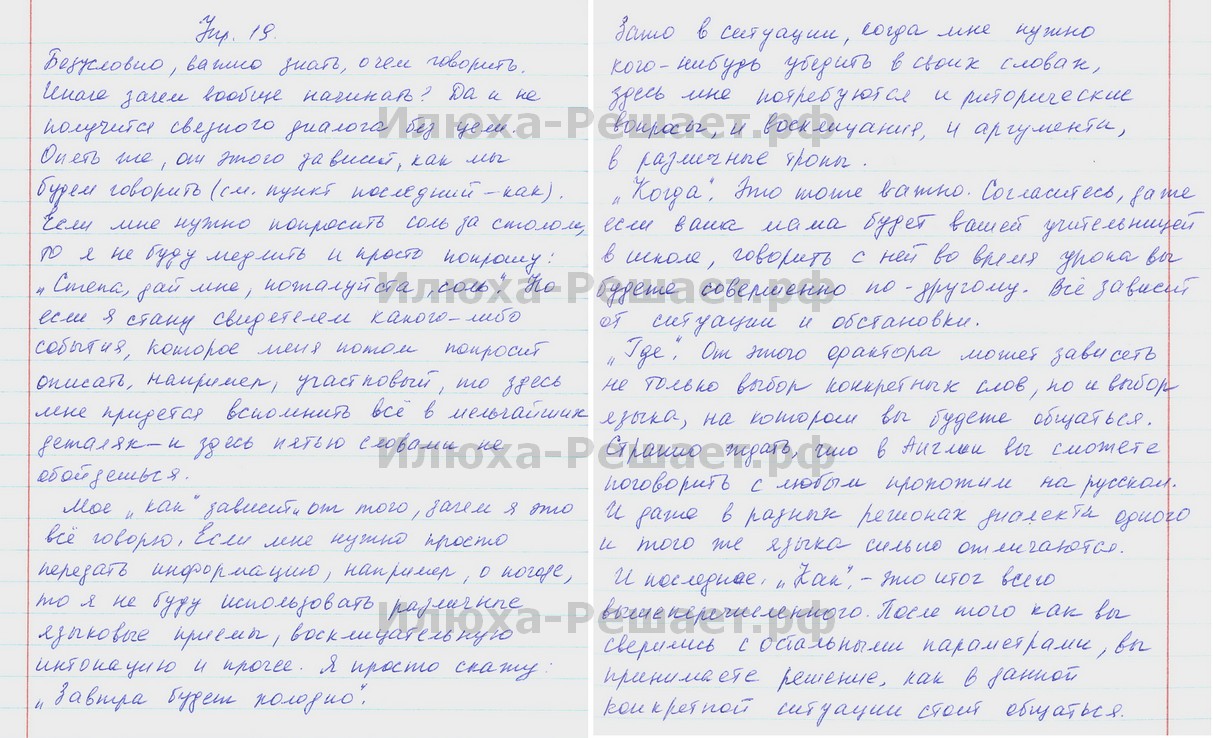 Упр. 19.
Безусловно, важно знать, о чем говорить.
Иначе зачем вообще начинать? Да и не
получится связного диалога без цели.
Опять же, от этого зависит, как мы
будем говорить (см. пункт последний – как).
Если мне нужно попросить соль за столом,
то я не буду медлить и просто попрошу:
„Степа, дай мне, пожалуйста, соль". Но
если я стану свидетелем какого-либо
события, которое меня потом попросит
описать, например, участковый, то здесь
мне придется вспомнить всё в мельчайших
деталях – и здесь пятью словами не
обойдешься.
Мое „как" зависит от того, зачем я это
всё говорю. Если мне нужно просто
передать информацию, например, о погоде,
то я не буду использовать различные
языковые приемы, восклицательную
интонацию и прочее. Я просто скажу:
„Завтра будет холодно".
Зато в ситуации, когда мне нужно
кого-нибудь убедить в своих словах,
здесь мне потребуются и риторические
вопросы, и восклицания, и аргументы,
в различные тропы.
„Когда". Это тоже важно. Согласитесь, даже
если ваша мама будет вашей учительницей
в школе, говорить с ней во время урока вы
будете совершенно по-другому. Всё зависит
от ситуации и обстановки.
„Где". От этого фактора может зависеть
не только выбор конкретных слов, но и выбор
языка, на котором вы будете общаться.
Странно ждать, что в Англии вы сможете
поговорить с любым прохожим на русском.
И даже в разных регионах диалекты одного
и того же языка сильно отличаются.
И последнее. „Как", – это итог всего
вышеперечисленного. После того как вы
сверились с остальными параметрами, вы
принимаете решение, как в данной
конкретной ситуации стоит общаться.
Илюха-Решает.рф
Илюха-Решает.рф
Илюха-Решает.рф
Илюха-Решает.рф